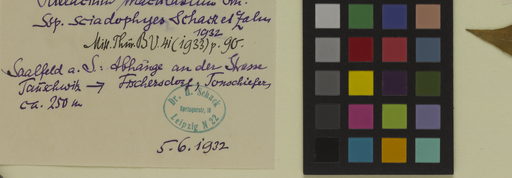 maculatum
Ssp. sciadophyes Schack et Zahn
1932
Mitt. Thür. B V. 41 (1933) p. 90.
Saalfeld a. S: Abhänge an der Strasse
Tauschwitz → Fischersdorf, Tonschiefer
ca. 250 m
Dr. H. Schack
Leipzig N 22
5.6.1932